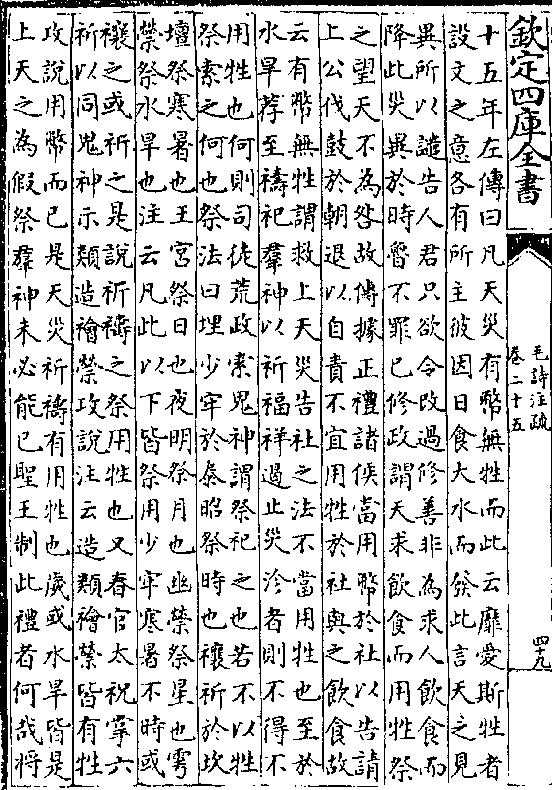 欽定四庫全書
毛詩注疏
卷二十五
四十九
十五年左傳曰凡天災有幣無牲而此云靡愛斯牲者
設文之意各有所主彼因日食大水而發此言天之見
異所以譴告人君只欲令改過修善非為求人飲食而
降此災異於時魯不罪已修政謂天求飲食而用牲祭
之望天不為咎故傳據正禮諸侯當用幣於社以告請
上公伐鼓於朝退以自責不宜用牲於社與之飲食故
云有幣無牲謂救上天災告社之法不當用牲也至於
水旱荐至禱祀羣神以祈福祥遏止災沴者則不得不
用牲也何則司徒荒政索鬼神謂祭祀之也若不以牲
祭索之何也祭法曰埋少牢於泰昭祭時也禳祈於坎
壇祭寒暑也王宮祭日也夜明祭月也幽禜祭星也雩
禜祭水旱也注云凡此以下皆祭用少牢寒暑不時或
禳之或祈之是說祈禱之祭用牲也又春官太祝掌六
祈以同鬼神示類造禬禜攻說注云造類禬禜皆有牲
攻說用幣而已是天災祈禱有用牲也歲或水旱皆是
上天之為假祭羣神未必能已聖王制此禮者何哉將